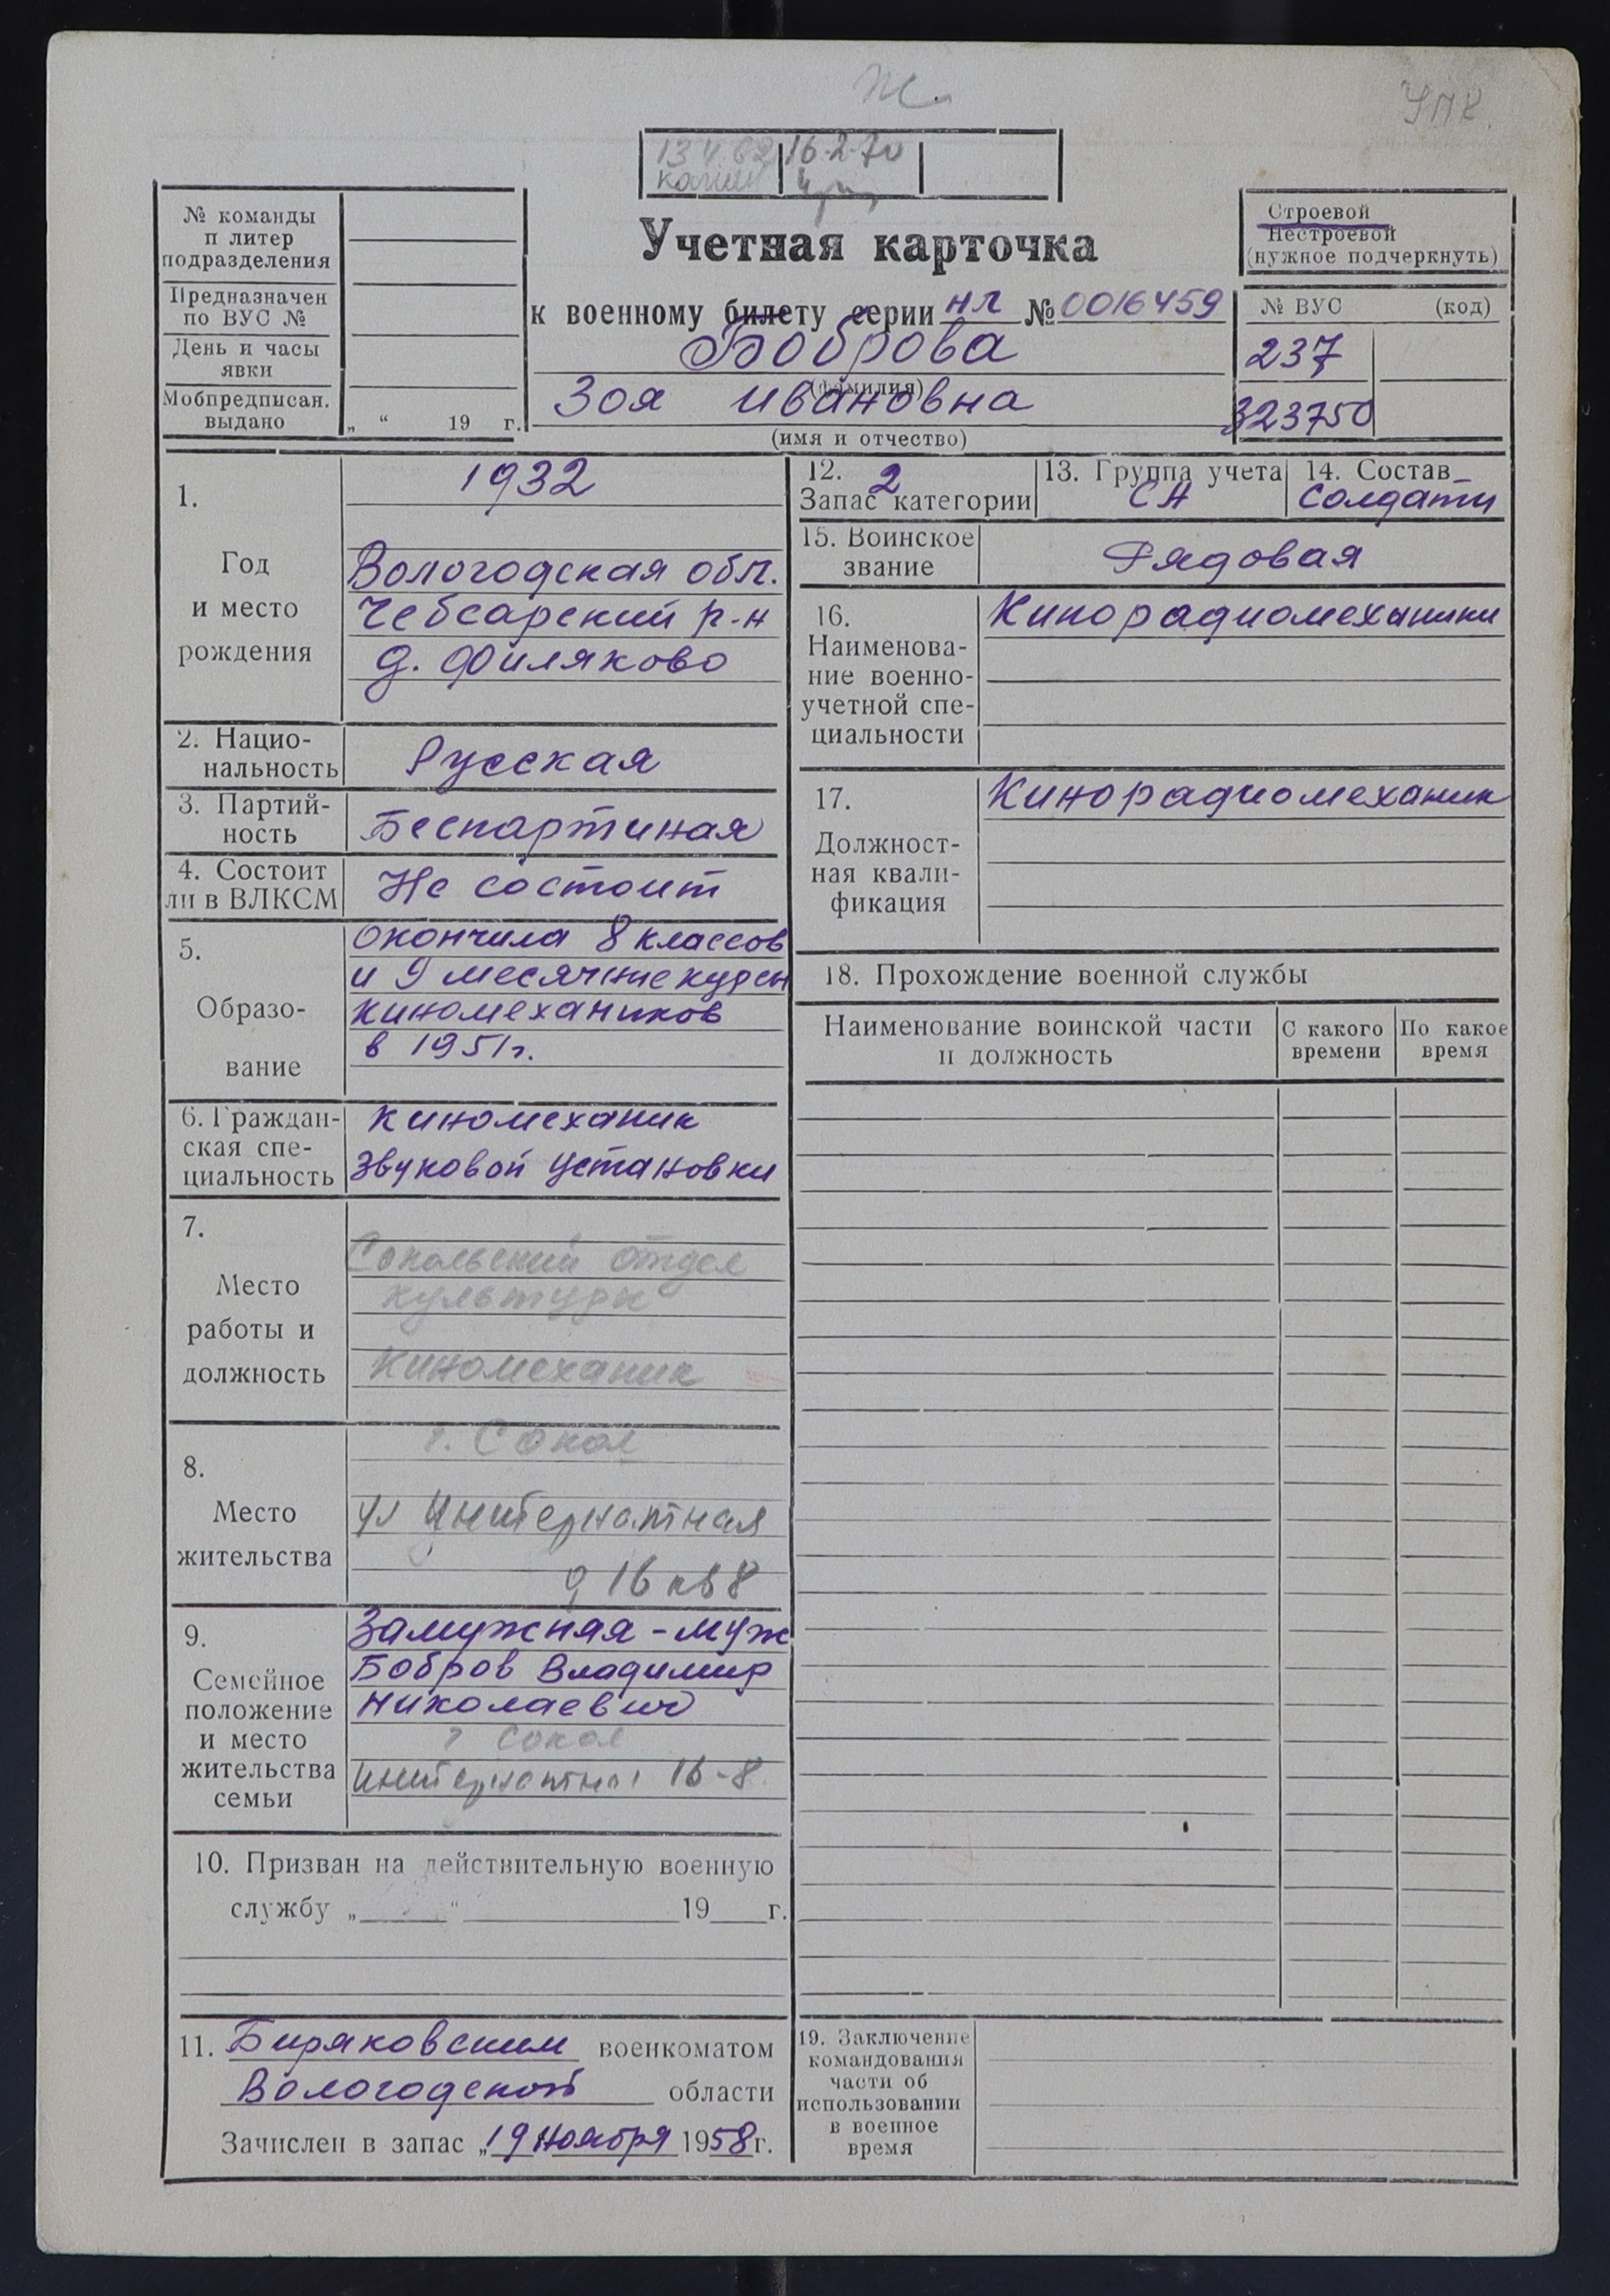 Ж
УПК
13 4 62 16-2-70
№ команды
и литер
подразделения
Предназначен
по ВУС №
День и часы
явки
Мобпредписан.
выдано „ “ 19 г.
Учетная карточка
к военному билету серии НЛ № 0016459
Боброва
(фамилия)
Зоя Ивановна
(имя и отчество)
Строевой
Нестроевой
(нужное подчеркнуть)
№ ВУС (код)
237
323750
1.
Год
и место
рождения
1932
Вологодская обл.
Чебсарский р-н
д. Филяково
2. Нацио-
нальность
Русская
3. Партий-
ность
Беспартиная
4. Состоит
ли в ВЛКСМ
Не состоит
5.
Образо-
вание
Окончила 8 классов
и 9 месячные курсы
киномехаников
в 1951г.
6. Граждан-
ская спе-
циальность
Киномеханик
звуковой установки
7.
Место
работы и
должность
Сокольский отдел
культуры
Киномеханик
8.
Место
жительства
г. Сокол
ул Интернатная
д 16 кв 8
9.
Семейное
положение
и место
жительства
семьи
Замужняя - муж
Бобров Владимир
Николаевич
г Сокол
Интернатная 16-8
10. Призван на действительную военную
службу „ “ 19 г.
11. Биряковским военкоматом
Вологодской области
Зачислен в запас „19 ноября 1958г.
12. 2
Запас категории
13. Группа учета
СА
14. Состав
Солдаты
15. Воинское
звание
Рядовая
16.
Наименова-
ние военно-
учетной спе-
циальности
Кинорадиомеханики
17.
Должност-
ная квали-
фикация
Кинорадиомеханик
18. Прохождение военной службы
Наименование воинской части
и должность
С какого
времени
По какое
время
19. Заключение
командования
части об
использовании
в военное
время